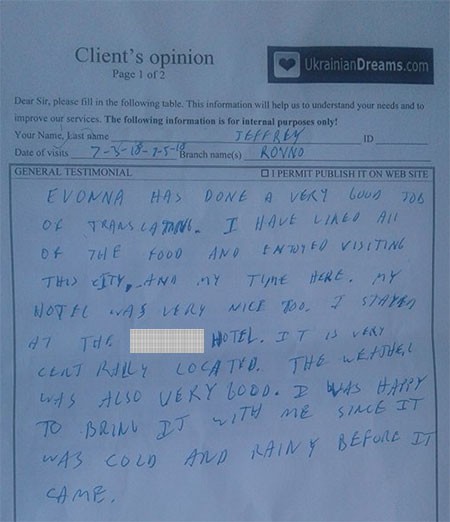 Client's opinion
Page 1 of 2
UkrainianDreams.com
Dear Sir, please fill in the following table. This information will help us to understand your needs and to
improve our services. The following information is for internal purposes only!
Your Name, Last name JEFFREY ID
Date of visits 7-3-18-7-5-18 Branch name(s) ROVNO
GENERAL TESTIMONIAL ☐ I PERMIT PUBLISH IT ON WEB SITE
EVONNA HAS DONE A VERY GOOD JOB
OF TRANSLATING. I HAVE LIKED ALL
OF THE FOOD AND ENJOYED VISITING
THIS CITY, AND MY TIME HERE. MY
HOTEL WAS VERY NICE TOO. I STAYED
AT THE HOTEL. IT IS VERY
CENTRALLY LOCATED. THE WEATHER
WAS ALSO VERY GOOD. I WAS HAPPY
TO BRING IT WITH ME SINCE IT
WAS COLD AND RAINY BEFORE IT
CAME.